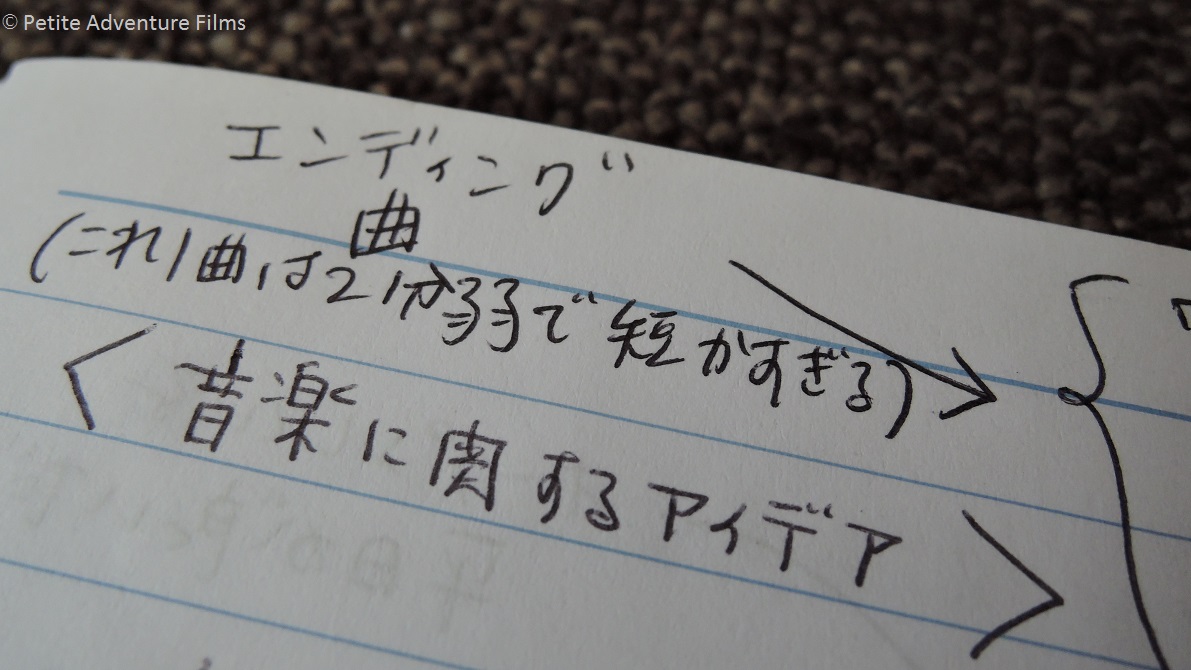 © Petite Adventure Films
エンディング
曲
(これ1曲は2分弱で短かすぎる)
<音楽に関するアイデア>